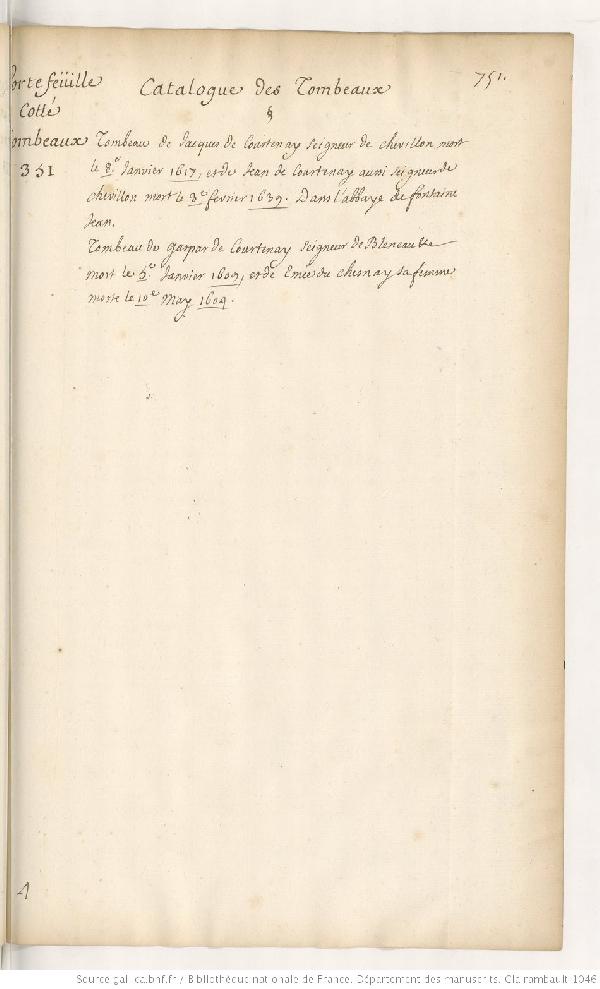 751.
Portefeüille
Cotté
Tombeaux
351
Catalogue des Tombeaux
§
Tombeau de Jacques de Courtenay Seigneur de Chevillon mort
le 8.e Janvier 1617, et de Jean de Courtenay aussi Seigneur de
Chevillon mort le 3.e fevrier 1639. Dans l'abbaye de fontaine
Jean.
Tombeau du gaspar de Courtenay Seigneur de Bleneau &c
mort le 5.e Janvier 1609, et de Emée du Chesnay sa femme
morte le 10.e May 1604.
A
Source gallica.bnf.fr / Bibliothèque nationale de France. Département des manuscrits. Clairambault 1046